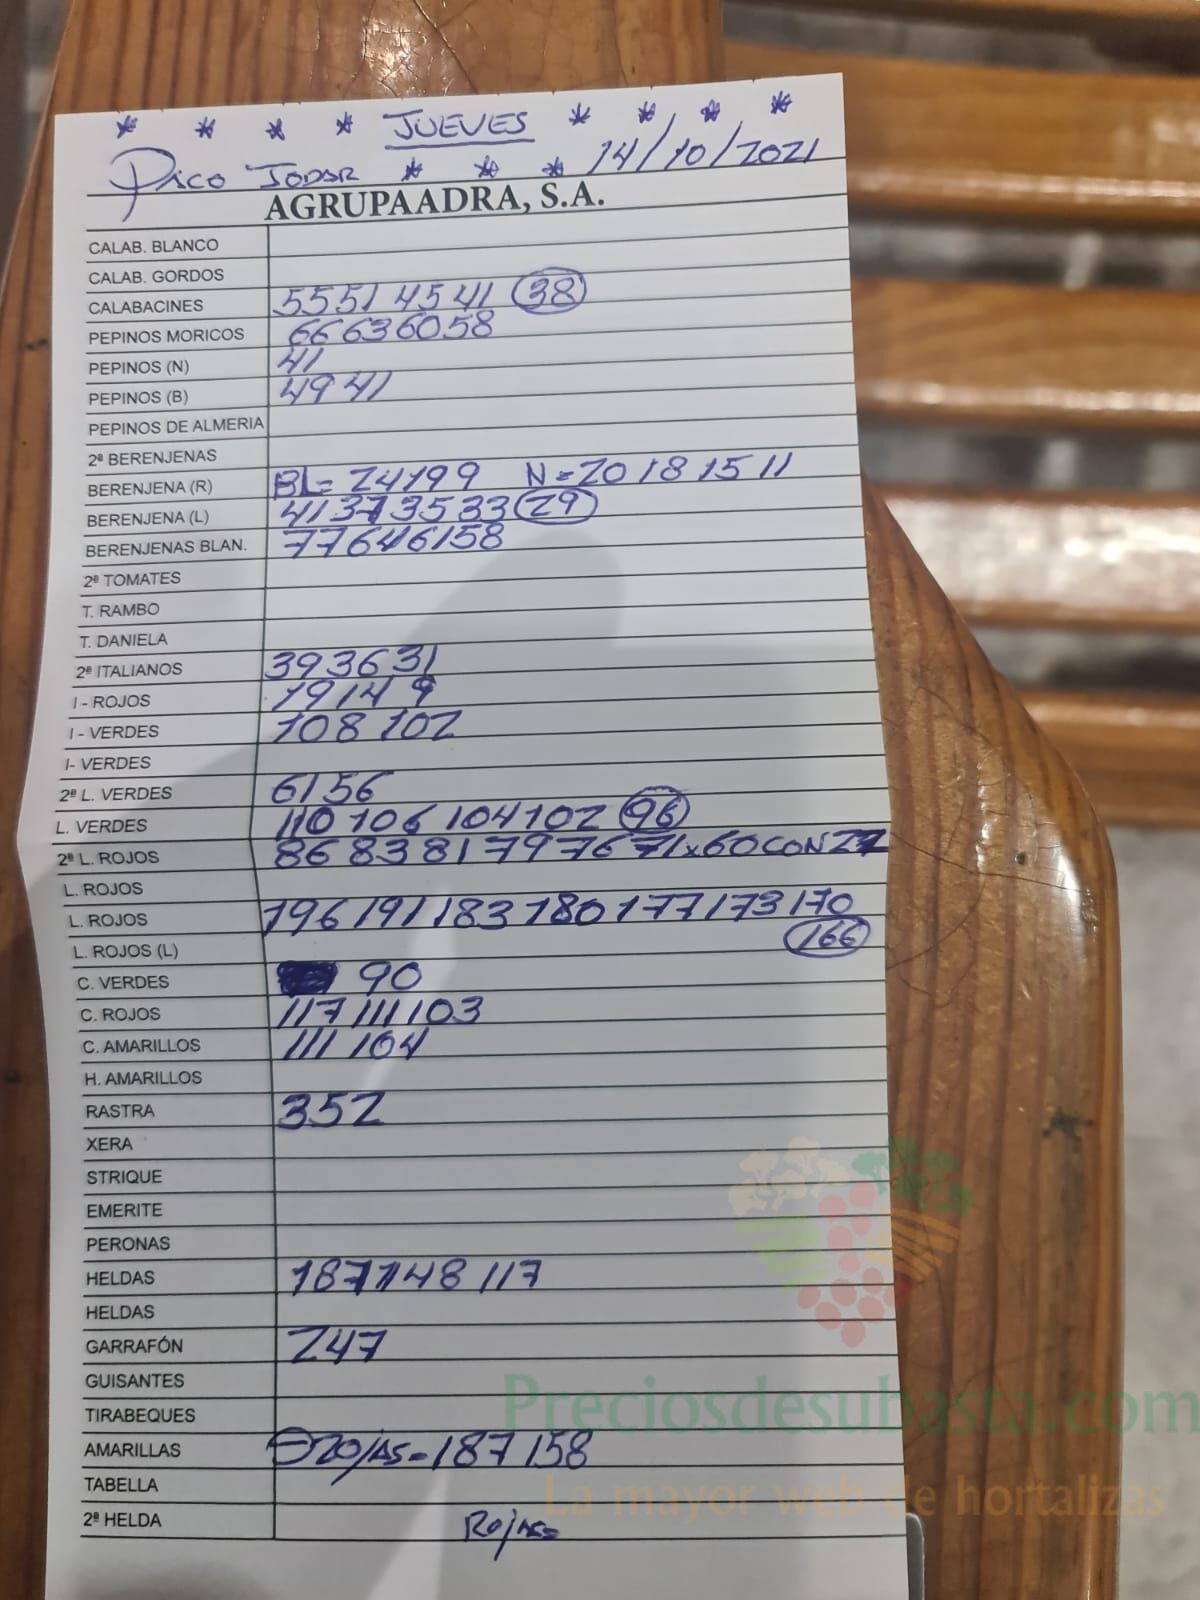 * * * * JUEVES * * * *
PACO JODAR * * * 14/10/2021
AGRUPAADRA, S.A.
CALAB. BLANCO
CALAB. GORDOS
CALABACINES 55 51 45 41 38
PEPINOS MORICOS 66 63 60 58
PEPINOS (N) 41
PEPINOS (B) 49 41
PEPINOS DE ALMERIA
2ª BERENJENAS
BERENJENA (R) BL= 24 19 9 N=20 18 15 11
BERENJENA (L) 41 37 35 33 29
BERENJENAS BLAN. 77 64 61 58
2ª TOMATES
T. RAMBO
T. DANIELA
2ª ITALIANOS 39 36 31
I - ROJOS 19 14 9
I - VERDES 108 102
I- VERDES
2ª L. VERDES 61 56
L. VERDES 110 106 104 102 96
2ª L. ROJOS 86 83 81 79 76 71x60CON
L. ROJOS
L. ROJOS 196 191 183 180 177 173 170
L. ROJOS (L) 166
C. VERDES 90
C. ROJOS 117 111 103
C. AMARILLOS 111 104
H. AMARILLOS
RASTRA 352
XERA
STRIQUE
EMERITE
PERONAS
HELDAS 187 148 117
HELDAS
GARRAFÓN 247
GUISANTES
TIRABEQUES
AMARILLAS ROJAS=187 158
TABELLA
2ª HELDA ROJAS=
Preciosdesubasta.com
La mayor web de hortalizas